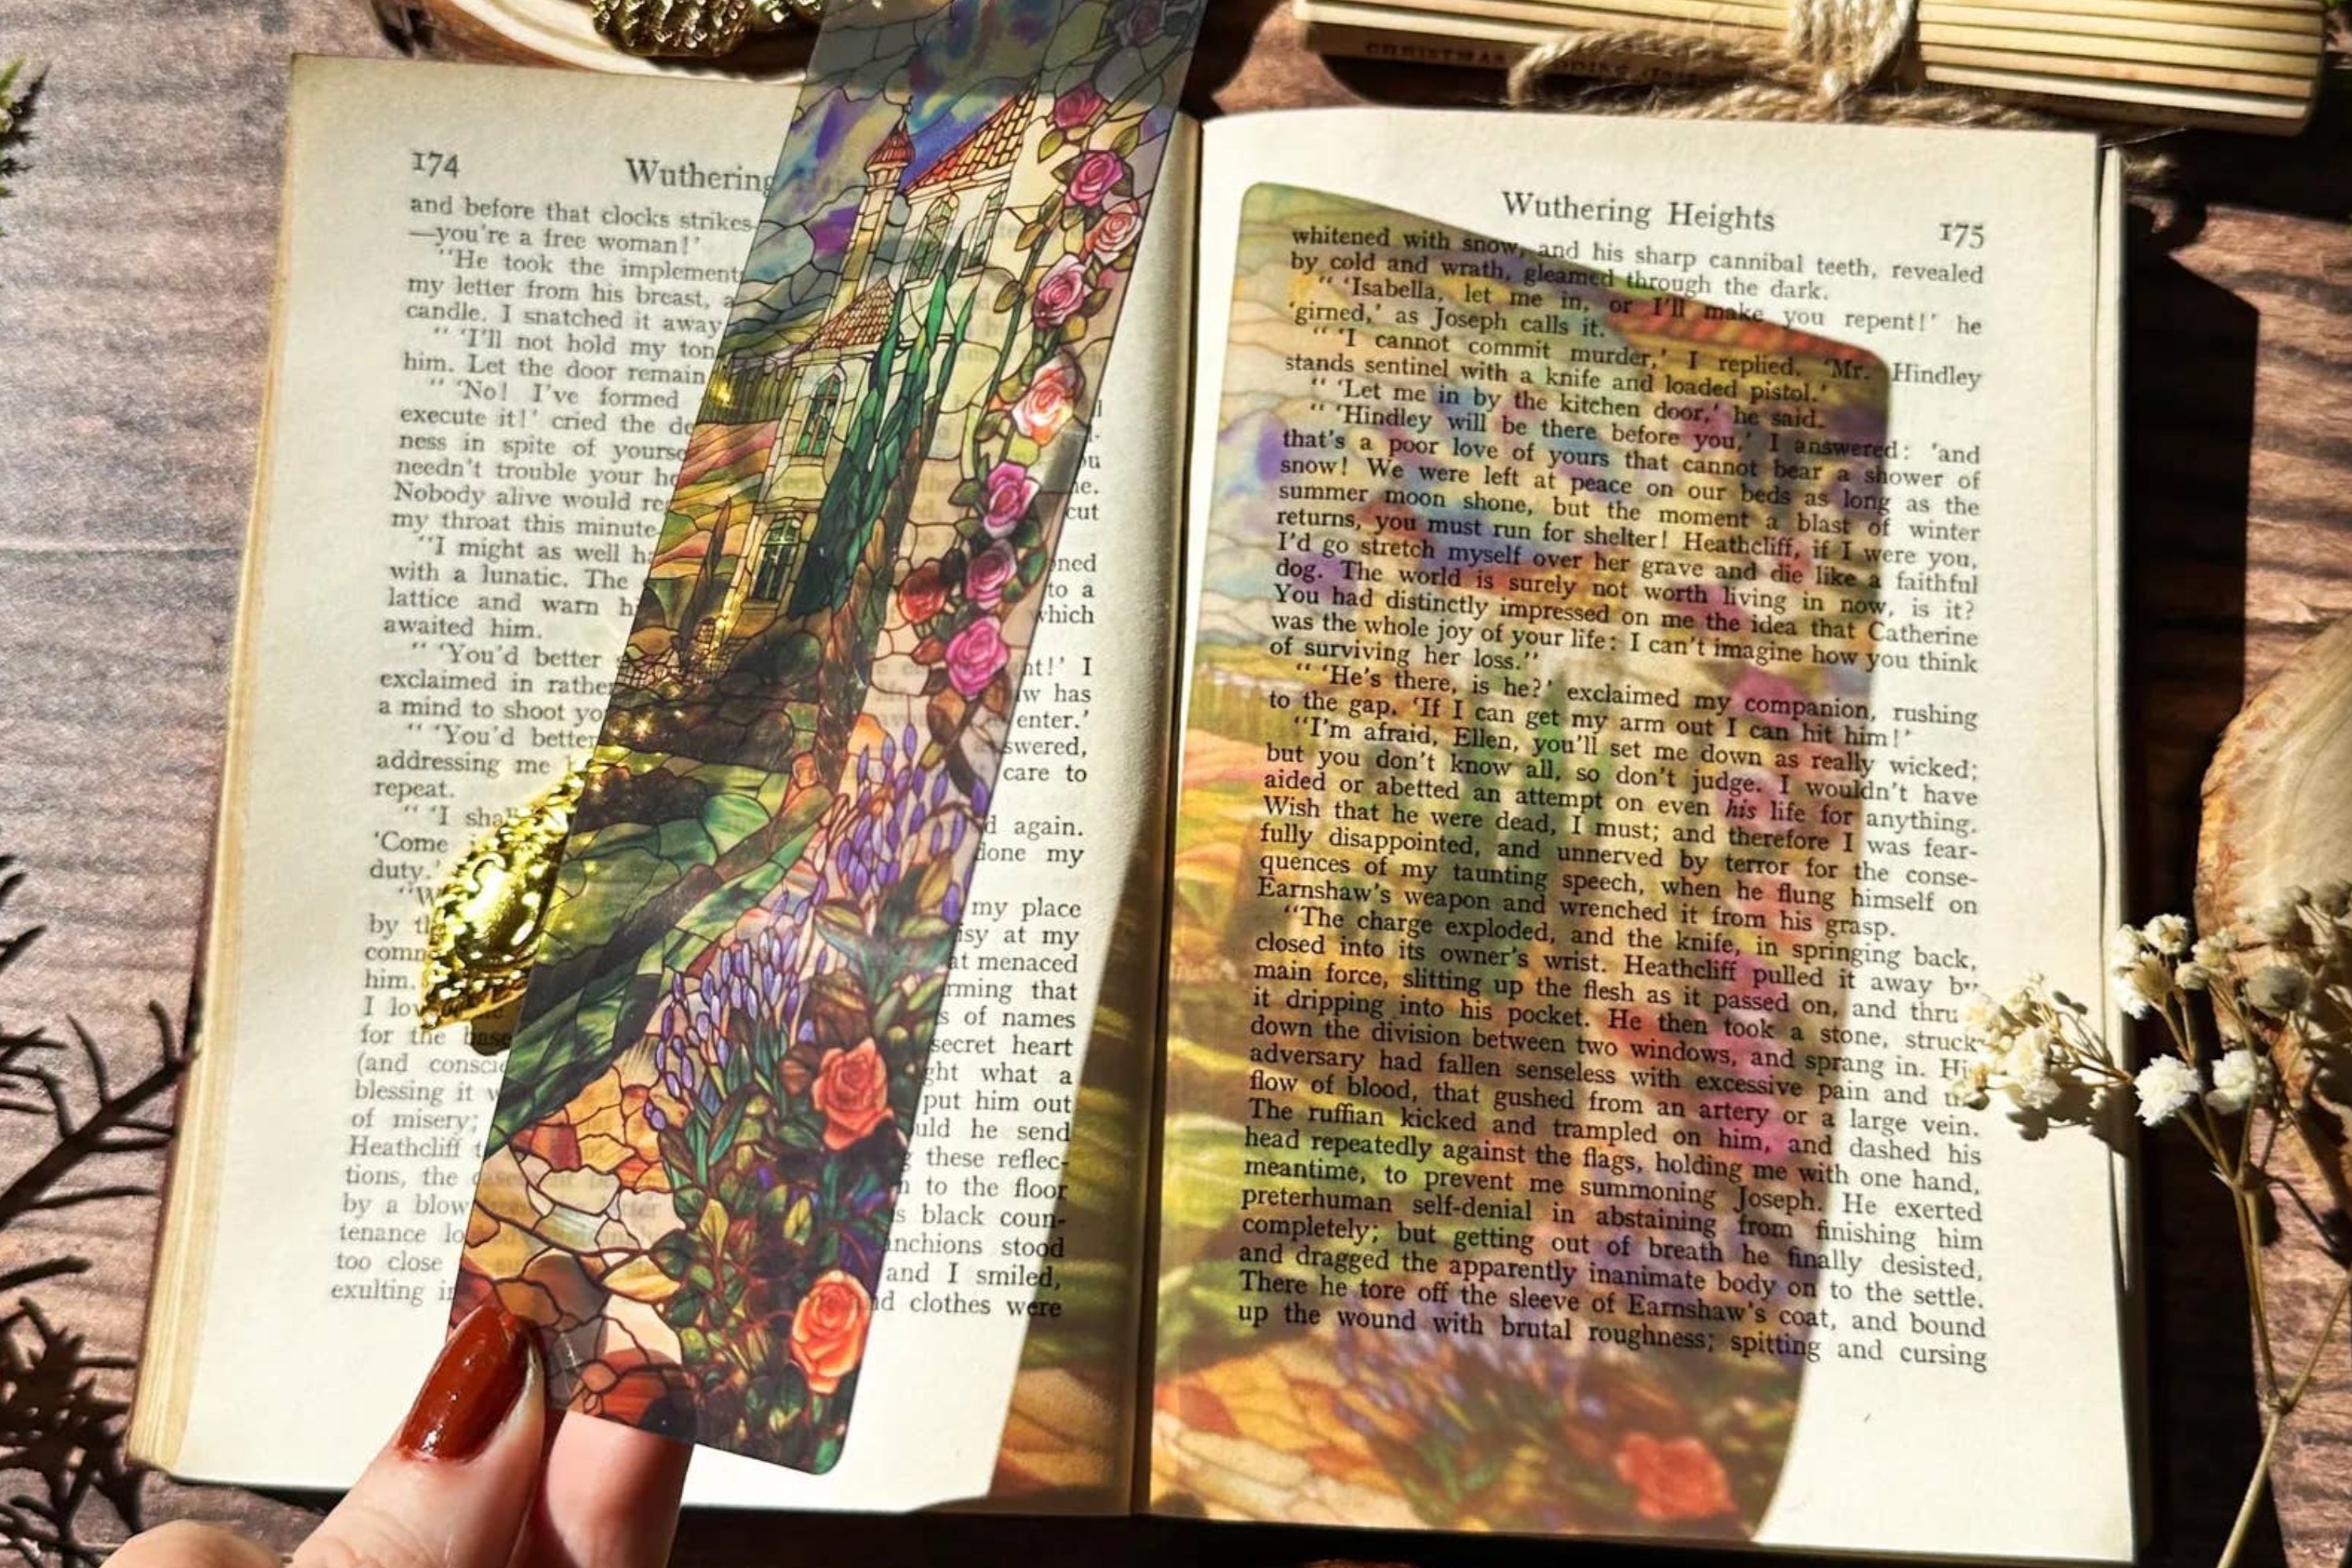 CHRISTMAS
174
Wuthering
and before that clocks strikes
—you're a free woman!'
"He took the implements
my letter from his breast, a
candle. I snatched it away
" 'I'll not hold my ton
him. Let the door remain
" 'No! I've formed
execute it!' cried the de
ness in spite of yourse
needn't trouble your he
Nobody alive would reg
my throat this minute
"I might as well ha
cut
with a lunatic. The
oned
lattice and warn hi
to a
awaited him.
which
" 'You'd better
ht!' I
exclaimed in rather
w has
a mind to shoot yo
enter.'
" 'You'd better
swered,
addressing me
care to
repeat.
" 'I shal
again.
'Come
done my
duty.'
"W
my place
by th
isy at my
comm
at menaced
him.
rming that
I lov
s of names
for the base
secret heart
(and conscie
ght what a
blessing it w
put him out
of misery;
uld he send
Heathcliff t
these reflec-
tions, the casement
to the floor
by a blow
s black coun-
tenance lo
anchions stood
too close
and I smiled,
exulting in
d clothes were
Wuthering Heights
175
whitened with snow, and his sharp cannibal teeth, revealed
by cold and wrath, gleamed through the dark.
" 'Isabella, let me in, or I'll make you repent!' he
'girned,' as Joseph calls it.
" 'I cannot commit murder,' I replied. 'Mr. Hindley
stands sentinel with a knife and loaded pistol.'
" 'Let me in by the kitchen door,' he said.
" 'Hindley will be there before you,' I answered: 'and
that's a poor love of yours that cannot bear a shower of
snow! We were left at peace on our beds as long as the
summer moon shone, but the moment a blast of winter
returns, you must run for shelter! Heathcliff, if I were you,
I'd go stretch myself over her grave and die like a faithful
dog. The world is surely not worth living in now, is it?
You had distinctly impressed on me the idea that Catherine
was the whole joy of your life: I can't imagine how you think
of surviving her loss."
" 'He's there, is he?' exclaimed my companion, rushing
to the gap. 'If I can get my arm out I can hit him!'
"I'm afraid, Ellen, you'll set me down as really wicked;
but you don't know all, so don't judge. I wouldn't have
aided or abetted an attempt on even his life for anything.
Wish that he were dead, I must; and therefore I was fear-
fully disappointed, and unnerved by terror for the conse-
quences of my taunting speech, when he flung himself on
Earnshaw's weapon and wrenched it from his grasp.
"The charge exploded, and the knife, in springing back,
closed into its owner's wrist. Heathcliff pulled it away by
main force, slitting up the flesh as it passed on, and thru
it dripping into his pocket. He then took a stone, struck
down the division between two windows, and sprang in. Hi
adversary had fallen senseless with excessive pain and th
flow of blood, that gushed from an artery or a large vein.
The ruffian kicked and trampled on him, and dashed his
head repeatedly against the flags, holding me with one hand,
meantime, to prevent me summoning Joseph. He exerted
preterhuman self-denial in abstaining from finishing him
completely; but getting out of breath he finally desisted,
and dragged the apparently inanimate body on to the settle.
There he tore off the sleeve of Earnshaw's coat, and bound
up the wound with brutal roughness; spitting and cursing